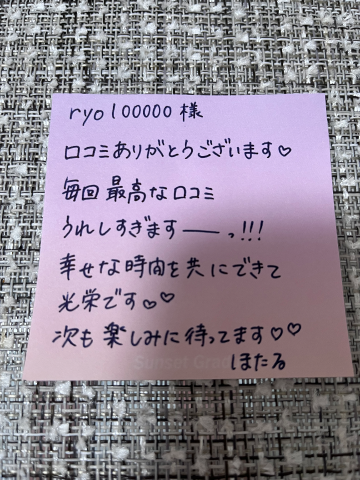 ryo100000様
口コミありがとうございます♡
毎回最高な口コミ
うれしすぎますーっ!!!
幸せな時間を共にできて
光栄です♡♡
次も楽しみに待ってます♡♡
ほたる